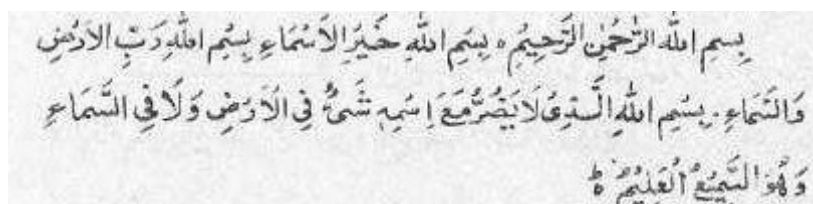 بِسْمِ اللهِ الرَّحْمٰنِ الرَّحِيْمِ ۰ بِسْمِ اللهِ خَيْرِ الْاَسْمَاءِ بِسْمِ اللهِ رَبِّ الْاَرْضِ
وَالسَّمَاءِ . بِسْمِ اللهِ الَّذِىْ لَا يَضُرُّ مَعَ اِسْمِهٖ شَىْءٌ فِى الْاَرْضِ وَلَا فِى السَّمَاءِ
وَهُوَ السَّمِيْعُ الْعَلِيْمُ ط